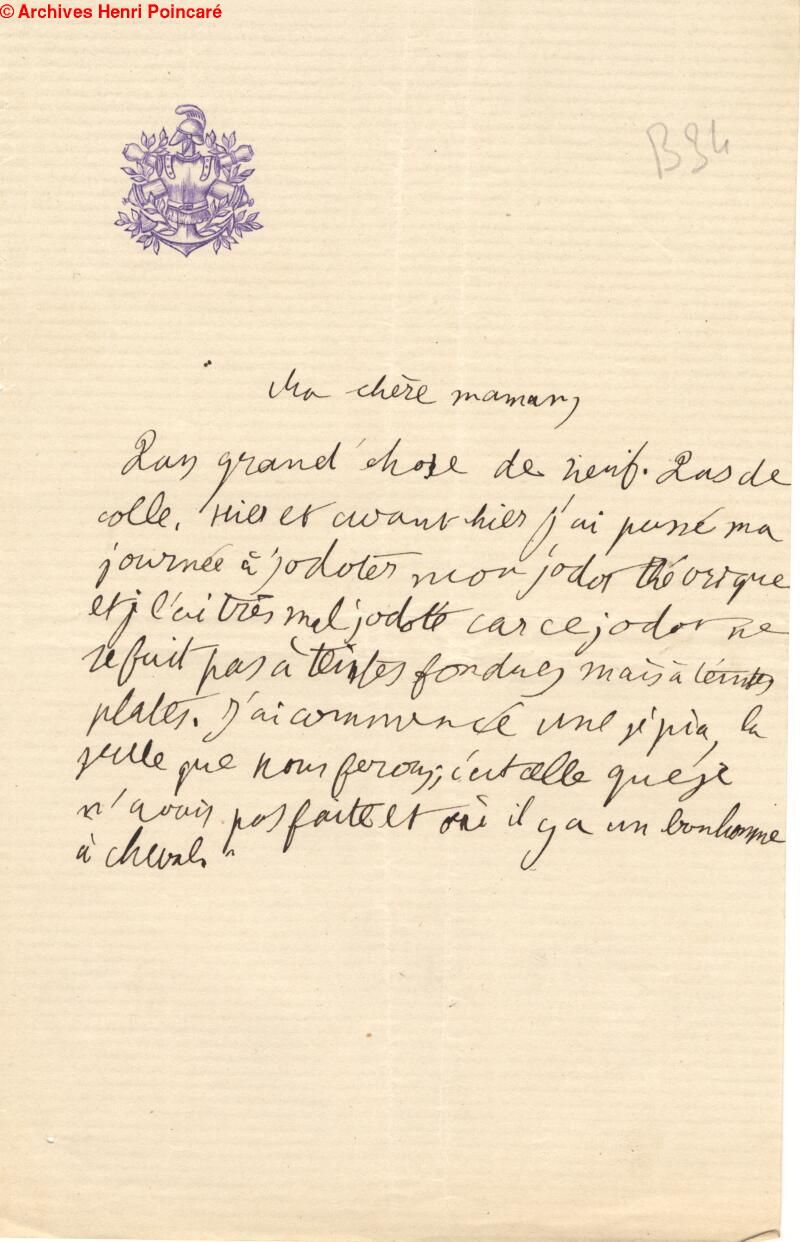 © Archives Henri Poincaré
B94
Ma chère maman,
Pas grand' chose de neuf. Pas de
colle. Hier et avant hier j'ai passé ma
journée à jodoter mon jodot théorique
et je l'ai très mal jodoté car ce jodot ne
se fait pas à teintes fondues mais à teintes
plates. J'ai commencé une sépia, la
seule que nous ferons; c'est celle que je
n'avais pas faite et où il y a un bonhomme
à cheval.